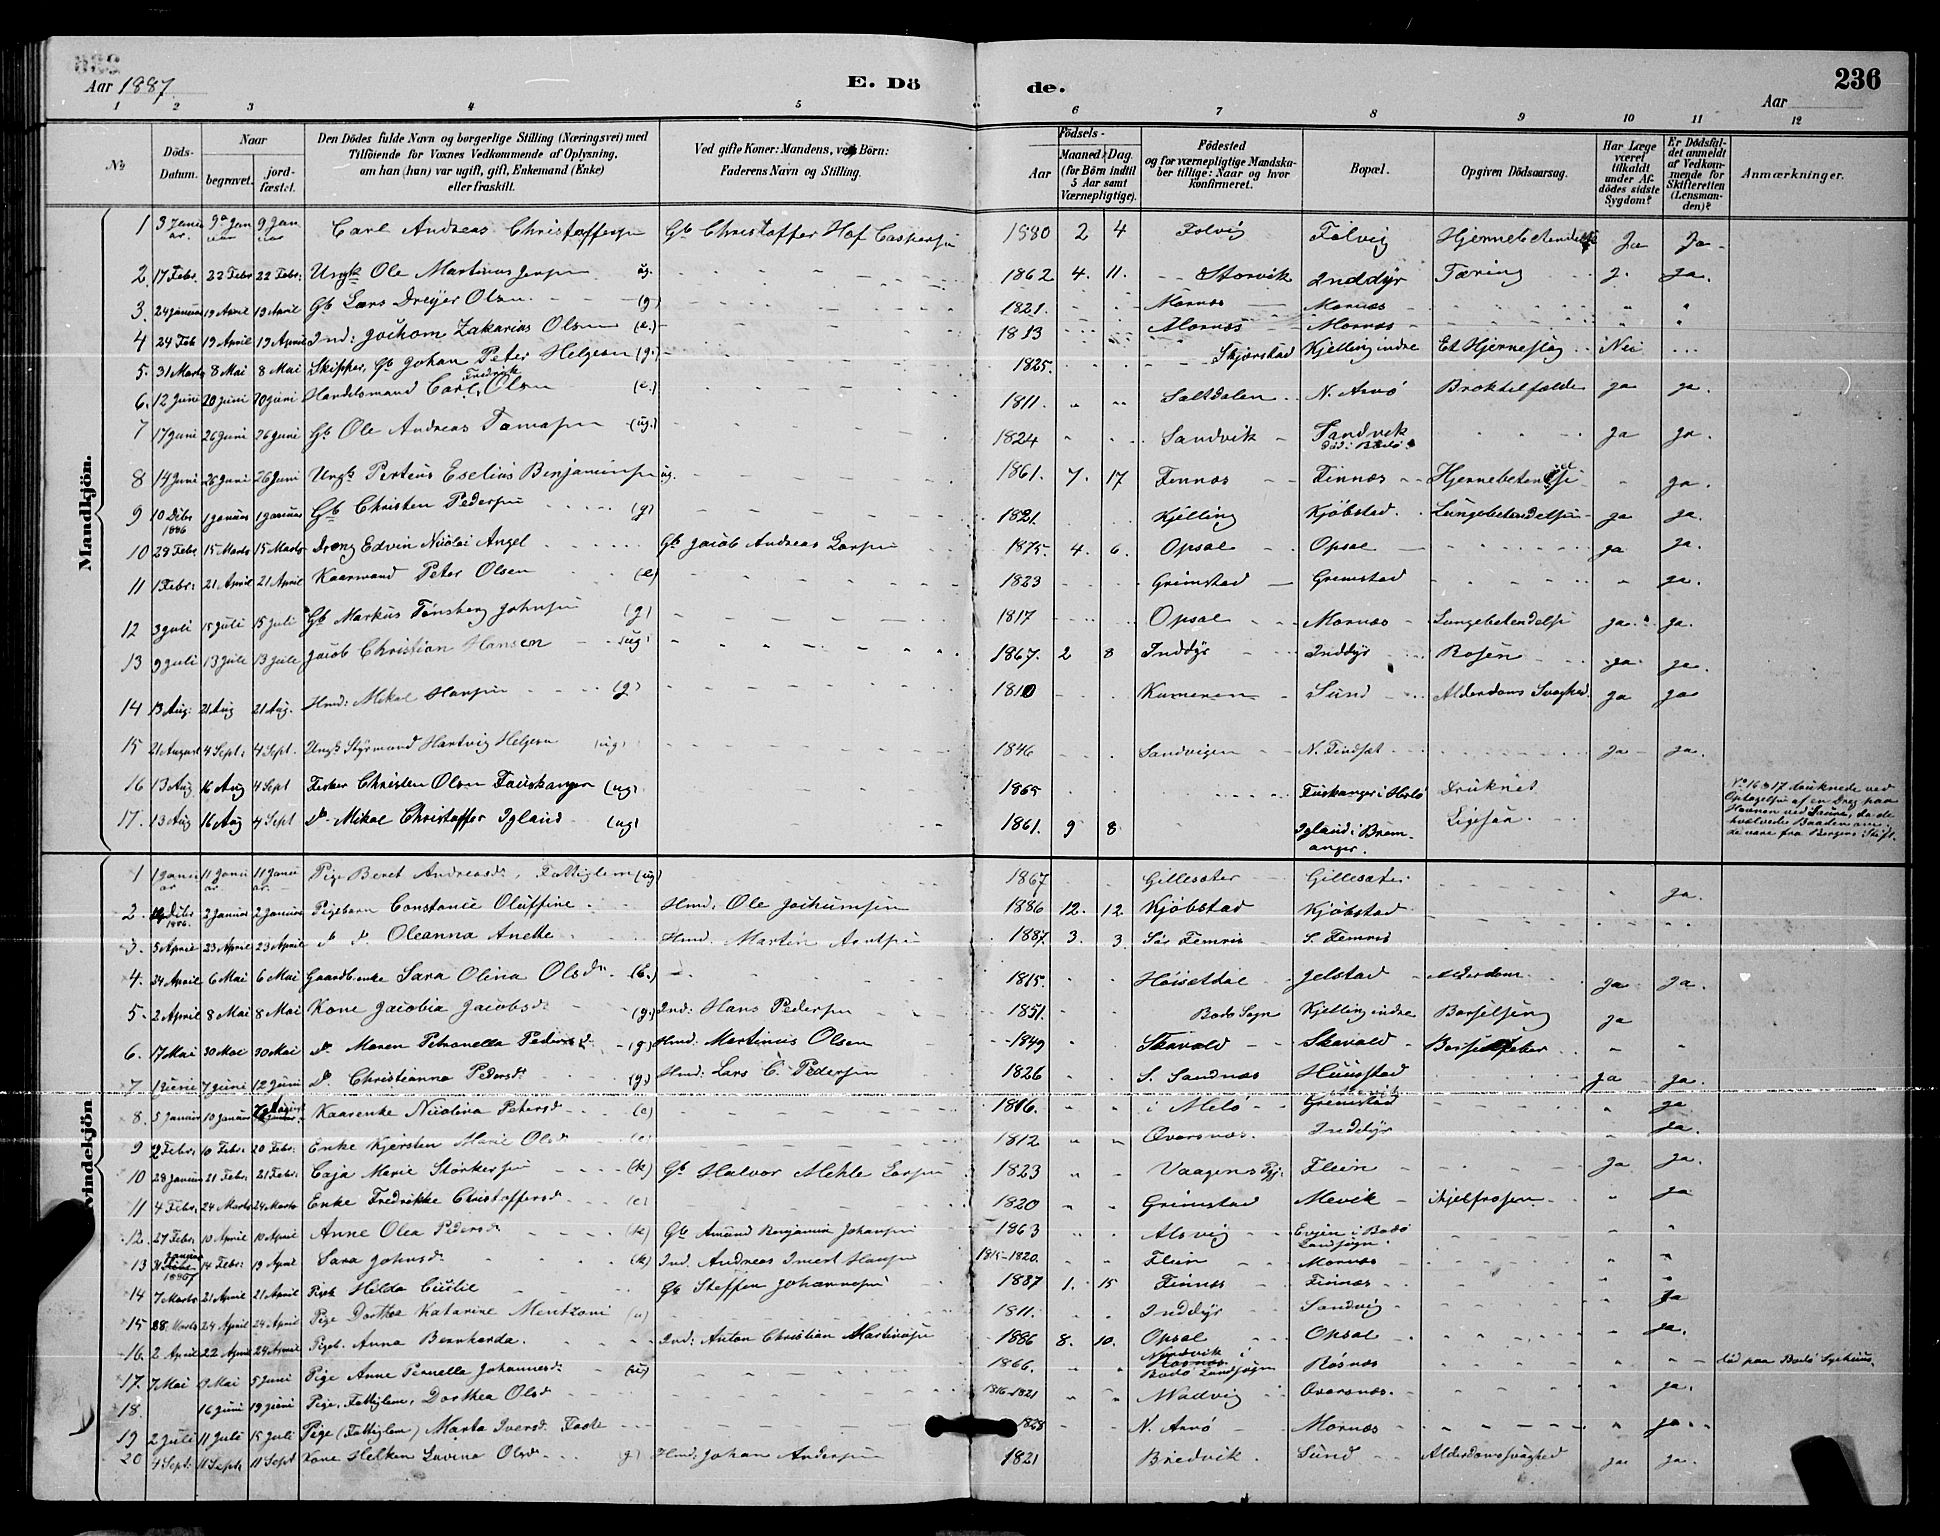 Aar 1887.
E. Döde.
236
Aar
1 2 3 4 5 6 7 8 9 10 11 12
No
Döds-Datum.
Naar begravet. jordfæstet.
Den Dödes fulde Navn og borgerlige Stilling (Næringsvei) med Tilföiende for Voxnes Vedkommende af Oplysning, om han (hun) var ugift, gift, Enkemand (Enke) eller fraskilt.
Ved gifte Koner: Mandens, ved Börn: Faderens Navn og Stilling.
Födsels-
Aar
Maaned. Dag. (for Börn indtil 5 Aar samt Værnepligtige).
Födested og for værnepligtige Mandskaber tillige: Naar og hvor konfirmeret.
Bopæl.
Opgiven Dödsaarsag.
Har Læge været tilkaldt under Afdödes sidste Sygdom?
Er Dödsfaldet anmeldt af Vedkommende for Skifteretten (Lensmanden)?
Anmærkninger.
Mandkjön.
1 3 Januar. 9 Januar 9 Januar Carl Andreas Christoffersen Gb Christoffer Hof Caspersen 1880 2 4 Folvig Folvig Hjernebetendelse Ja Ja
2 17 Febr. 22 Febr 22 Febr. Ungk Ole Martinus Jensen ug. 1862 4. 11. Storvik Inddyr Tæring J. Ja.
3. 24 Januar 19 April 19 April Gb Lars Dreyer Olsen (g) 1821. Mornæs Mornæs " "
4 24 Feb 19 April 19 April Ind: Jochom Zakarias Olsen (e.) 1813 Mornæs Mornæs " "
5. 31 Marts 8 Mai 8 Mai Skipper, Gb Johan Peter Helgesen (g.) 1825. Skjærstad Kjelling indre Et Hjerneslag Nei
6. 12 Juni 20 Juni 20 Juni Handelsmand Carl Fredrik Olsen (e.) 1811. Saltdalen N. Arnö Broktilfælde Ja Ja.
7 17 Juni 26 Juni 26 Juni Gb Ole Andreas Tomasen (ug.) 1824 Sandvik Sandvik död i Bodö Ja Ja.
8 14 Juni 26 Juni 26 Juni Ungk Perteus Eselius Benjaminsen ug. 1861. 7. 17 Finnæs Finnæs Hjernebetendelse " Ja.
9 10 Debr 1886 1 Januar 1 Januar Gb Christen Pedersen (g) 1821. Kjelling Kjöbstad Lungebetendelse Ja Ja.
10 28 Febr 15 Marts 15 Marts Dreng Edvin Nicolai Angel Gb Jacob Andreas Larsen 1875. 4. 6. Opsal Opsal Ja Ja.
11 1 Febr: 21 April 21 April Kaarmand Peter Olsen (e) 1823 Grimstad Grimstad " Ja.
12 3 Juli 15 Juli 15 Juli Gb Markus Tönsberg Johnsen (g) 1817 Opsal Mornæs Lungebetendelse Ja. Ja.
13 9 Juli 13 Juli 13 Juli Jacob Christian Hansen (ug) 1867. 2 8 Inddyr Inddyr Rosen Ja Ja.
14 13 Aug. 21 Aug 21 Aug. Hmd: Mikal Hansen (g) 1810 Kumeren Sund Alderdoms Svaghed. Ja Ja
15 21 August 4 Sept: 4 Sept. Ungk Styrmand Hartvig Helgesen (ug) 1846 Sandvigen N. Findset Ja Ja.
16 13 Aug 16 Aug 4 Sept Fisker Christen Olsen Fauskanger (ug) 1865 Fuskanger i Herlö Druknet
17. 13 Aug 16 Aug 4 Sept Do Mikal Christoffer Igland (ug) 1861. 9 8 Igland i Bremanger. Ligesaa
No 16 & 17 druknede ved Optagelse af en Dreg paa Havnen ved Sauna, da de hvælvede Baaden om; de vare fra Bergens Stift.
Kvindekjön
1 1 Januar 11 Januar. 11 Januar. Pige Beret Andreasd. Fattiglem (ug) 1867 Gillesæter Gillesæter " Ja.
2. Debr 1886. 2 Januar 2 Januar Pigebarn Constance Oluffine Hmd: Ole Jochumsen 1886 12. 12 Kjöbstad Kjöbstad
3. 5 April 23 April 23 April Do Do Oleanna Anette Hmd. Martin Arntsen 1887. 3. 3 Sör Femris S. Femris
4. 24 April 6 Mai 6 Mai Gaardb.enke Sara Olina Olsdr. (E.) 1815. Höisetdal Jelstad Alderdom Ja Ja.
5. 2 April 8 Mai 8 Mai Kone Jacobia Jacobsd. (g.) Ind: Hans Pedersen 1851. Bodö Sogn Kjelling indre Barselseng Ja
6. 17 Mai 30 Mai 30 Mai Do Maren Petronella Pedersd. (g) Hmd: Martinus Olsen 1849 Skavald Skavald Barselfeber " "
7 1 Juni 7 Juni 12 Juni Do Christianna Pedersd. (g.) Hmd: Lars C. Pedersen 1826 S. Sandnæs Humstad Ja Ja.
8. 5 Januar 10 Januar Kaarenke Nicolina Petersd. (e) 1816. i Melö Grimstad " Ja
9 2 Febr. 10 Febr. 20 Febr. Enke Kjersten Marie Olsd. (e) 1812 Oversnæs Inddyr " Ja.
10 28 Januar 21 Febr. 21 Febr. Caja Marie Störkersen (k) Gb Halvor Mehle Larsen 1823 Vaagens Pgj. Flein Ja Ja.
11 4 Febr. 24 Marts 24 Marts Enke Fredrikke Christoffersd. (e) 1820 Grimstad Mevik ihjelfrosen " Ja
12. 27 Febr. 10 April 10 April Anne Olea Pedersd. (k) Gb Amund Benjamin Johansen 1863 Alsvig Evjen i Bodö Landsogn. " "
13 31 Januar 1887 14 Febr. 19 April Sara Johnsd. (k) Ind. Andreas Imert Hansen 1815-1820. Flein Mornæs "
14 7 Marts 21 April 21 April Pigeb Hilda Cecilie Gb Steffen Johannesen 1887 1. 15 Finnæs Finnæs " "
15 28 Marts 24 April 24 April Pige Dorthea Katarine Mentzoni (u) 1811. Inddyr Sandvig Ja
16. 2 April 22 April 24 April Pigeb. Anna Bernharda. Ind: Anton Christian Martinsen 1886 8. 10. Opsal Opsal " Ja.
17. 7 Mai 9 Mai 5 Juni Pige Anne Pernelle Johannesd. (u) 1866. Nordvik i Bodö Landsogn Rösnæs " " död paa Bodö Sygehuus
18. 16 Juni 19 Juni Pige, Fattiglem, Dorthea Olsd. 1816-1821 Nadvig Oversnæs. Ja.
19 2 Juli 11 Juli 15 Juli Pige (Fattiglem) Marta Iversd. Foste 1828 N. Arnö Mornæs Ja
20 4 Sept: 11 Sept: 11 Sept Kone Helken Lovina Olsd. (g) Hmd: Johan Andersen 1821 Bredvik Sund Alderdomssvaghed Ja Ja.